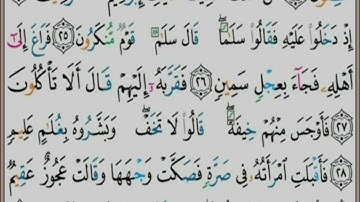 إِذْ دَخَلُواْ عَلَيْهِ فَقَالُواْ سَلَٰمًا ۖ قَالَ سَلَٰمٌ قَوْمٌ مُّنكَرُونَ ٢٥ فَرَاغَ إِلَىٰٓ
أَهْلِهِۦ فَجَآءَ بِعِجْلٍ سَمِينٍ ٢٦ فَقَرَّبَهُۥٓ إِلَيْهِمْ قَالَ أَلَا تَأْكُلُونَ
٢٧ فَأَوْجَسَ مِنْهُمْ خِيفَةً ۖ قَالُواْ لَا تَخَفْ ۖ وَبَشَّرُوهُ بِغُلَٰمٍ عَلِيمٍ
٢٨ فَأَقْبَلَتِ ٱمْرَأَتُهُۥ فِى صَرَّةٍ فَصَكَّتْ وَجْهَهَا وَقَالَتْ عَجُوزٌ عَقِيمٌ